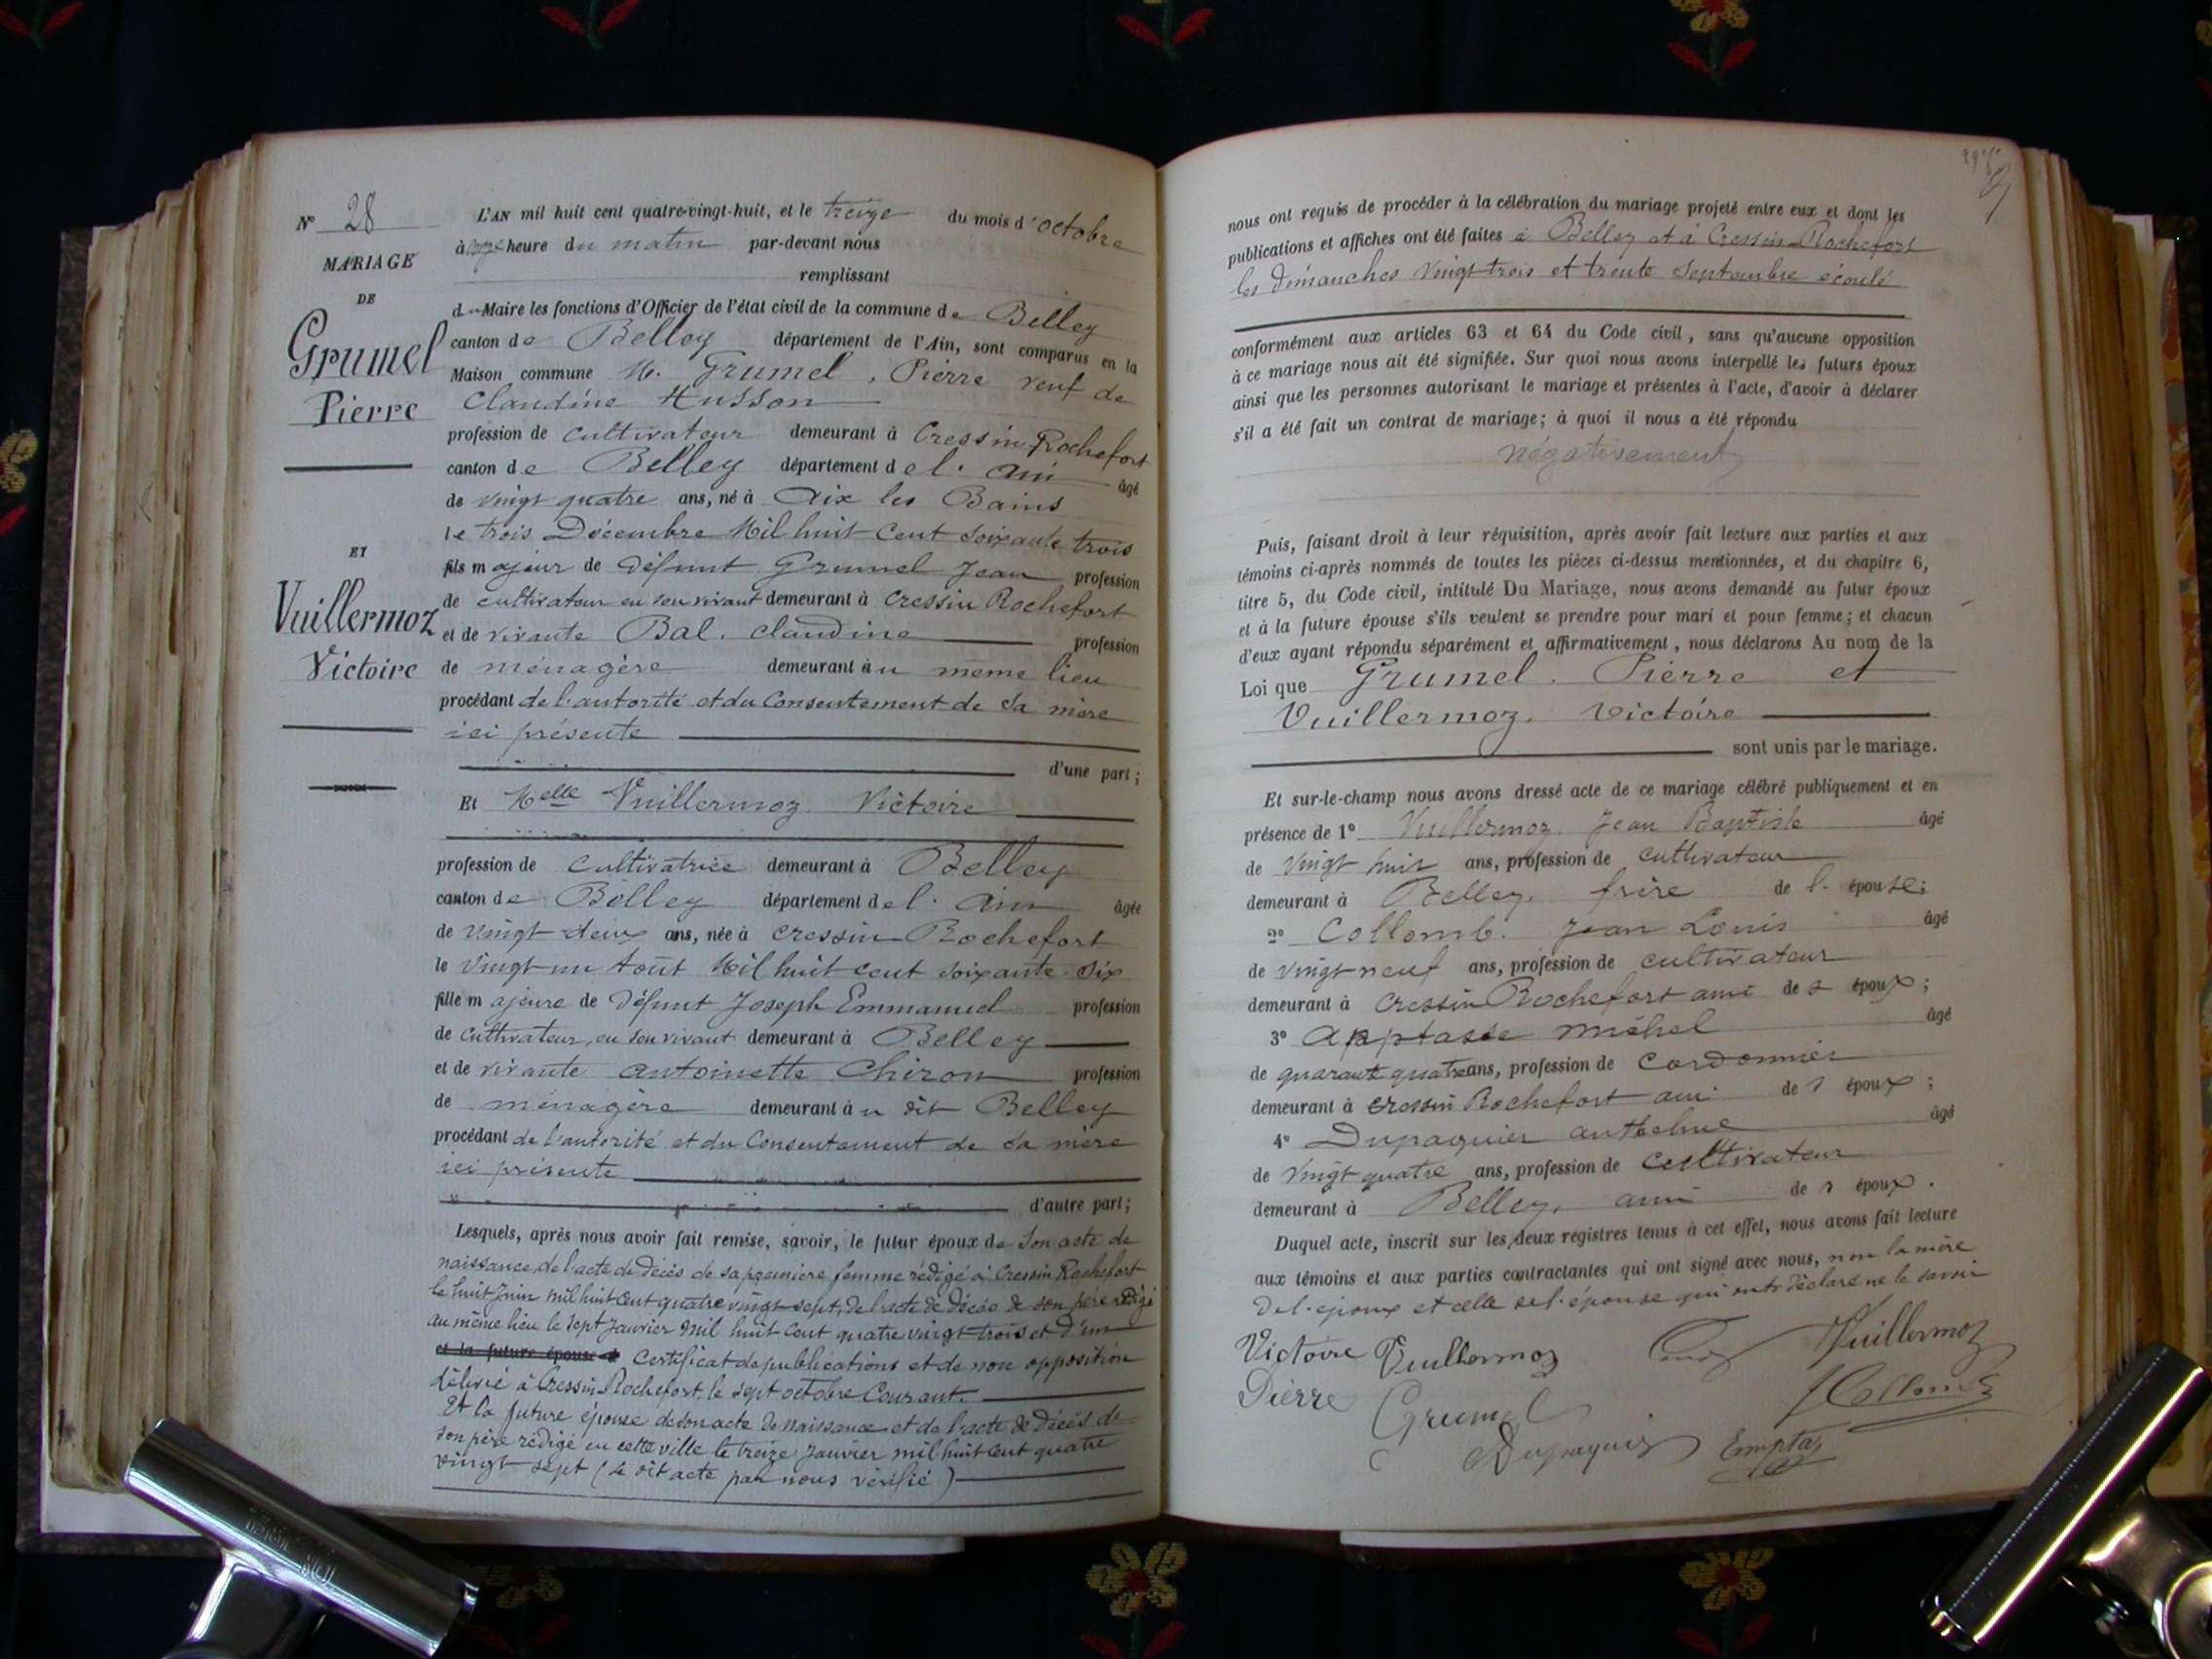 N° 28
MARIAGE
DE
Grumel
Pierre
ET
Vuillermoz
Victoire
L'AN mil huit cent quatre-vingt-huit, et le treize du mois d'octobre
à onze heure du matin par-devant nous
remplissant
d Maire les fonctions d'Officier de l'état civil de la commune de Belley
canton de Belley département de l'Ain, sont comparus en la
Maison commune M. Grumel, Pierre veuf de
Claudine Husson
profession de cultivateur demeurant à Cressin Rochefort
canton de Belley département de l'ain âgé
de vingt quatre ans, né à Aix les Bains
le trois Décembre Mil huit Cent soixante trois
fils majeur de défunt Grumel Jean profession
de cultivateur en son vivant demeurant à Cressin Rochefort
et de vivante Bal. Claudine profession
de ménagère demeurant au même lieu
procédant de l'autorité et du Consentement de sa mère
ici présente
d'une part;
Et Melle Vuillermoz Victoire
profession de cultivatrice demeurant à Belley
canton de Belley département de l'Ain âgée
de vingt deux ans, née à Cressin Rochefort
le vingt un Août Mil huit cent soixante six
fille majeure de défunt Joseph Emmanuel profession
de cultivateur, en son vivant demeurant à Belley
et de vivante Antoinette Chiron profession
de ménagère demeurant au dit Belley
procédant de l'autorité et du Consentement de sa mère
ici présente
d'autre part;
Lesquels, après nous avoir fait remise, savoir, le futur époux de Son acte de
naissance, de l'acte de décès de sa première femme rédigé à Cressin Rochefort
le huit Juin mil huit Cent quatre vingt sept, de l'acte de décès de son père rédigé
au même lieu le sept Janvier Mil huit Cent quatre vingt trois et d'un
et la future épouse d Certificat de publications et de non opposition
délivré à Cressin Rochefort, le sept octobre Courant.
Et la future épouse de son acte de naissance et de l'acte de décès de
son père rédigé en cette ville le treize Janvier mil huit Cent quatre
vingt sept (le dit acte par nous vérifié)
nous ont requis de procéder à la célébration du mariage projeté entre eux et dont les
publications et affiches ont été faites à Belley et à Cressin-Rochefort
les dimanches vingt trois et trente Septembre écoulé
conformément aux articles 63 et 64 du Code civil, sans qu'aucune opposition
à ce mariage nous ait été signifiée. Sur quoi nous avons interpellé les futurs époux
ainsi que les personnes autorisant le mariage et présentes à l'acte, d'avoir à déclarer
s'il a été fait un contrat de mariage; à quoi il nous a été répondu
négativement
Puis, faisant droit à leur réquisition, après avoir fait lecture aux parties et aux
témoins ci-après nommés de toutes les pièces ci-dessus mentionnées, et du chapitre 6,
titre 5, du Code civil, intitulé Du Mariage, nous avons demandé au futur époux
et à la future épouse s'ils veulent se prendre pour mari et pour femme; et chacun
d'eux ayant répondu séparément et affirmativement, nous déclarons Au nom de la
Loi que Grumel. Pierre et
Vuillermoz. Victoire
sont unis par le mariage.
Et sur-le-champ nous avons dressé acte de ce mariage célébré publiquement et en
présence de 1° Vuillermoz. Jean Baptiste âgé
de vingt huit ans, profession de cultivateur
demeurant à Belley. frère de l'épouse;
2° Collomb. Jean Louis âgé
de vingt neuf ans, profession de cultivateur
demeurant à Cressin Rochefort ami des époux;
3° Michel âgé
de quarante quatre ans, profession de Cordonnier
demeurant à Cressin Rochefort ami des époux;
4° Dupaquier anthelme âgé
de Vingt quatre ans, profession de Cultivateur
demeurant à Belley, ami des époux.
Duquel acte, inscrit sur les deux registres tenus à cet effet, nous avons fait lecture
aux témoins et aux parties contractantes qui ont signé avec nous, non la mère
de l'époux et celle de l'épouse qui ont déclaré ne le savoir
Victoire Vuillermoz Vuillermoz
Pierre Grumel J Collomb
Dupaquier